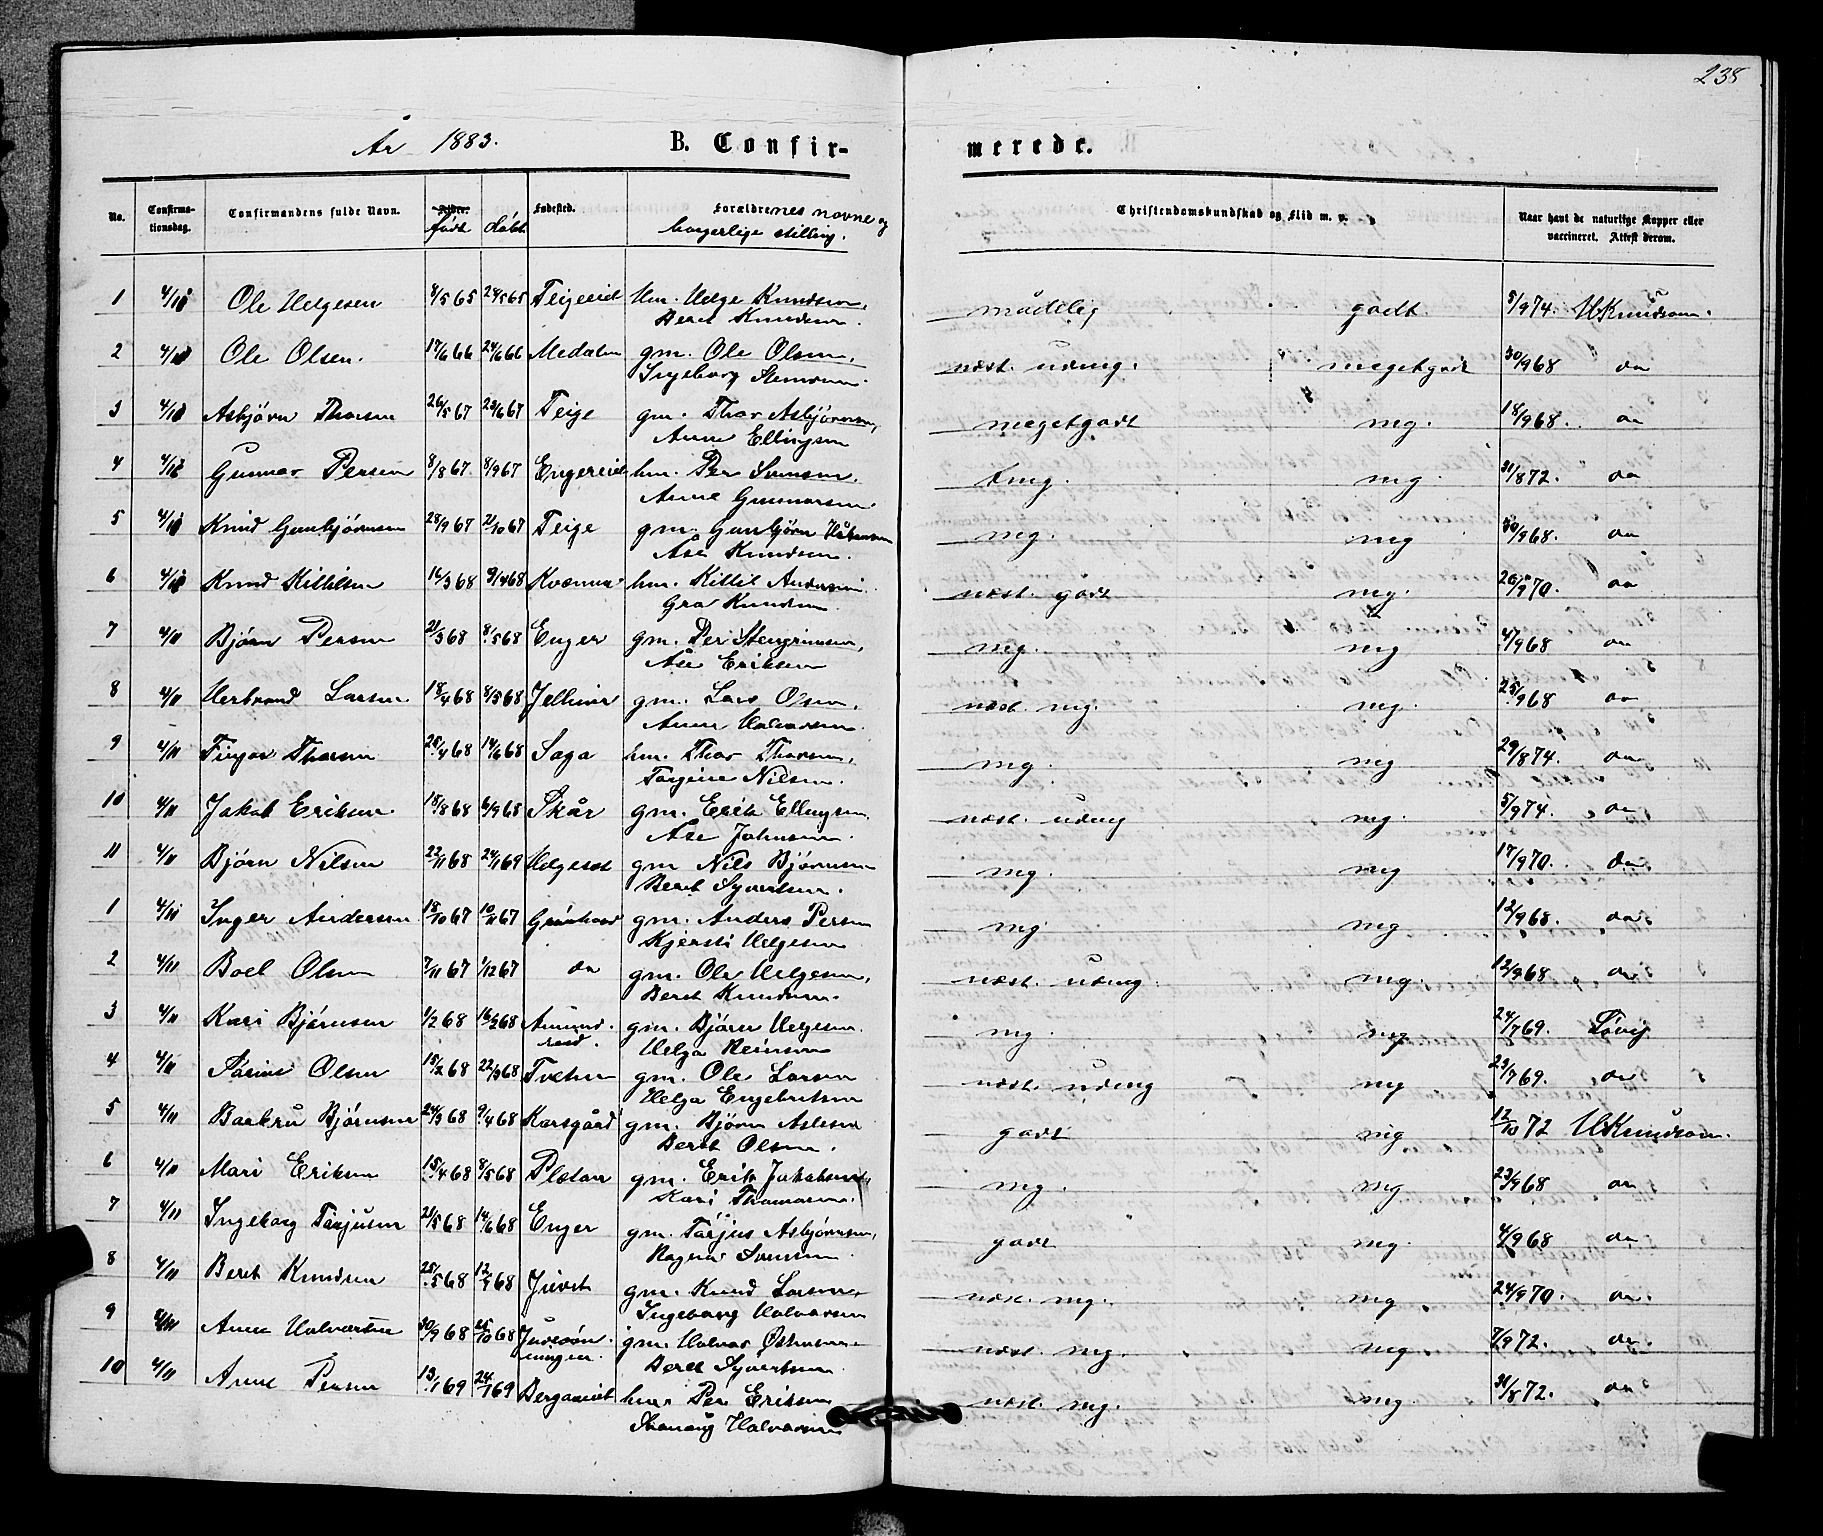 238
År 1883. B. Confir- merede.
No. Confirma-tionsdag. Confirmandens fulde Navn. Alder. født døbt Fødested. Forældrenes navne og borgerlige stilling. Christendomskundskab og Flid m. v. Naar havt de naturlige Kopper eller vaccineret. Attest derom.
1 4/11 Ole Helgesen 8/5 65 28/5 65 Teigereid hm. Helge Knudsen, mådelig godt 5/9 74. HKnudson.
Beret Knudsen.
2 4/11 Ole Olsen. 17/6 66 24/6 66 Medalen gm. Ole Olsen, næst. udmg. megetgodt 30/9 68 do
Ingeborg
3 4/11 Asbjörn Thorsen 26/5 67 23/6 67 Teige gm. Thor Asbjörnsen, megetgodt mg. 18/9 68. do
Anne Ellingsen
4 4/11 Gunnar Persen 8/8 67 8/9 67 Engereid hm. Per Svensen. mg. 31/8 72. do
Anne Gunnarsen
5 4/11 Knud Gunbjörnsen 28/9 67 21/10 67 Teige gm. Gunbjörn Håkonsen mg. mg 30/9 68. do
Åse Knudsen.
6 4/11 Knud Kittilsen 16/3 68 9/4 68 hm. Kittil Andersen næst. godt mg. 20/9 70. do
Gro Knudsen.
7 4/11 Björn Persen 21/3 68 8/5 68 Enger gm. Per Stengrimsen, mg. mg 4/9 68 do
Åse Eriksen
8 4/11 Herbrand Larsen 18/4 68 8/5 68 gm. Lars Olsen, næst. mg. mg. 25/9 68 do
Anne Halvorsen.
9 4/11 Thorsen 28/4 68 14/6 68 Saga hm. Thor Thorsen, mg. mg 29/8 74. do
Nilsen.
10 4/11 Jakob Eriksen 18/8 68 6/9 68 Skår gm. Erik Ellingsen næst. udmg mg. 5/9 74. do
Åse Johnsen.
11 4/11 Björn Nilsen 22/11 68 24/1 69 Helgeset gm Nils Björnsen mg. mg 17/9 70. do
Beret Syvertsen.
1 4/11 Inger Andersen 18/10 67 10/11 67 gm. Anders Persen mg mg 12/9 68. do
Kjersti Helgesen
2 4/11 Boel Olsen 7/11 67 1/12 67 do gm. Ole Helgesen, næst. udmg. mg. 12/9 68 do
Beret Knudsen.
3 4/11 Kari Björnsen 1/2 68 16/2 68 gm. Björn Helgesen. mg. mg 24/7 69.
Helga Reinsen
4 4/11 Olsen 15/2 68 22/3 68 gm. Ole Larsen næst. udmg mg 23/7 69. do
Helga Engebretsen
5 4/11 Barbru Björnsen 24/3 68 9/4 68 Karsgård gm. Björn Aslesen godt mg 12/10 72 HKnudson.
Beret Olsen.
6 4/11 Mari Eriksen 15/4 68 8/5 68 gm. Erik Jakobsen mg. mg 23/9 68 do
Kari Thomasen.
7 4/11 Ingeborg Tarjusen 21/5 68 14/6 68 Enger gm. Tarjus Asbjörnsen, godt mg. 4/9 68 do
Ragna Svensen
8 4/11 Beret Knudsen 25/5 68 12/7 68 Juvet gm. Knud Larsen, næst. mg. mg 24/9 70. do
Ingeborg Halvorsen
9 4/11 Anne Halvorsen 30/9 68 25/10 68 gm. Halvor næst. mg. mg. 7/9 72. do
Beret Syvertsen.
10 4/11 Anne Persen 13/1 69 24/1 69 hm. Per Eriksen næst. mg. mg. 31/8 72. do
Halvorsen